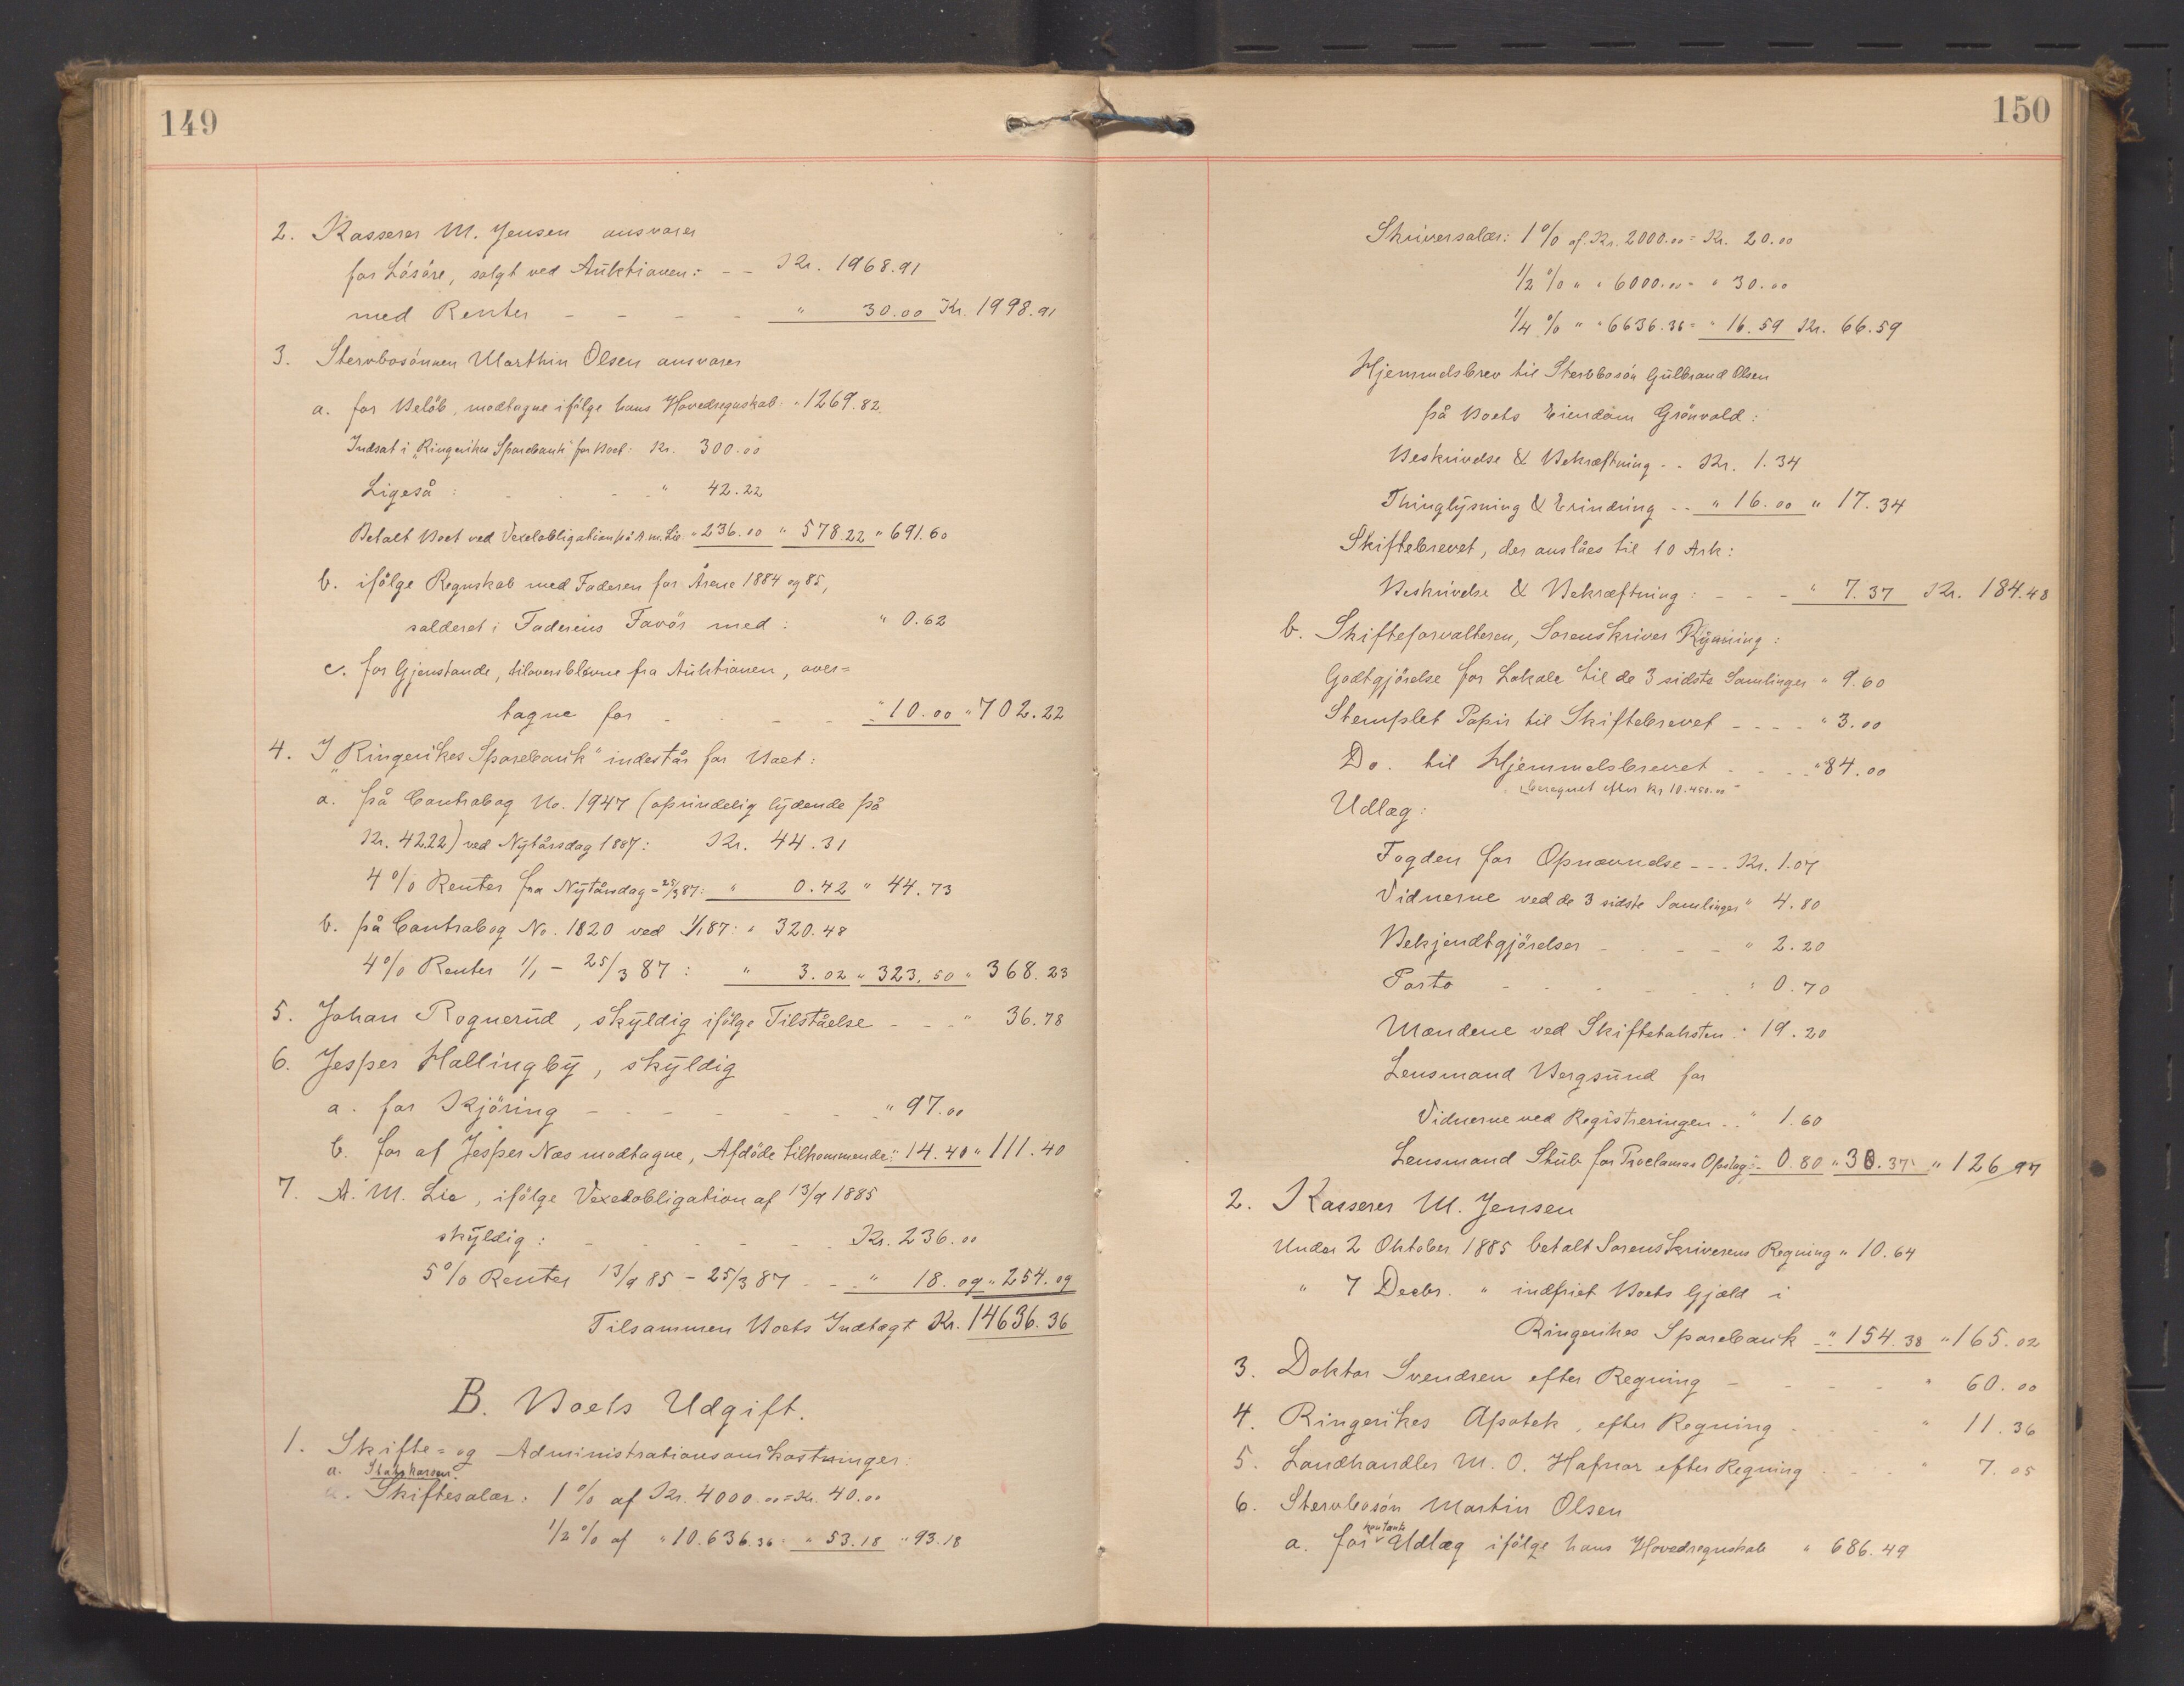 149
2. Kasserer M. Jensen ansvarer
for Lösöre, solgt ved Auktionen: - - Kr. 1968.91
med Renter - - - - " 30.00 Kr. 1998.91
3. Stervbosönnen Marthin Olsen ansvarer
a. for Belöb, modtagne ifölge hans Hovedregnskab: " 1269.82
Indsat i "Ringerikes Sparebank" for Boet: Kr. 300.00
Ligeså : - - - " 42.22
Betalt Boet ved Vexelobligation på A. M. Lie " 236.00 " 578.22 " 691.60
b. ifölge Regnskab med Faderen for Årene 1884 og 85,
salderet i Faderens Favör med : " 0.62
c. for Gjenstande, tiloversblevne fra Auktionen, over=
tagne for - - - - " 10.00 " 702.22
4. I "Ringerikes Sparebank" indestår for Boet:
a. på Contrabog No. 1947 (oprindelig lydende på
Kr. 42.22) ved Nytårsdag 1887: Kr. 44.31
4 % Renter fra Nytårsdag - 25/3 87: " 0.42 " 44.73
b. på Contrabog No. 1820 ved 1/1 87: " 320.48
4 % Renter 1/1 - 25/3 87 : " 3.02 " 323.50 " 368.23
5. Johan Rognerud, skyldig ifölge Tilståelse - - - " 36.78
6. Jesper Hallingby, skyldig
a. for Kjöring - - - - - " 97.00
b. for af Jesper Næs modtagne, Afdöde tilkommende: " 14.40 " 111.40
7. A. M. Lie, ifölge Vexelobligation af 13/9 1885
skyldig : - - - - - Kr. 236.00
5 % Renter 13/9 85 - 25/3 87 - - - " 18.09 " 254.09
Tilsammen Boets Indtægt Kr. 14636.36
B. Boets Udgift.
1. Skifte- og Administrationsomkostninger:
a. Statskassen.
Skiftesalær: 1 % af Kr. 4000.00 = Kr. 40.00
1/2 % af " 10.636.36 = " 53.18 " 93.18
150
Skriversalær: 1 % af Kr. 2000.00 = Kr. 20.00
1/2 % " " 6000.00 = " 30.00
1/4 % " " 6636.36 = " 16.59 Kr. 66.59
Hjemmelsbrev til Stervbosön Gulbrand Olsen
på Boets Eiendom Grönvold :
Beskrivelse & Bekræftning - - Kr. 1.34
Thinglysning & Erindring - - " 16.00 " 17.34
Skiftebrevet, der anslåes til 10 Ark :
Beskrivelse & Bekræftning : - - - " 7.37 Kr. 184.48
b. Skifteforvalteren, Sorenskriver Rynning :
Godtgjörelse for Lokale til de 3 sidste Samlinger " 9.60
Stemplet Papir til Skiftebrevet - - - - " 3.00
Do. til Hjemmelsbrevet - - - - " 84.00
beregnet efter Kr 10.450.00
Udlæg :
Fogden for Opnævnelse - - - Kr. 1.07
Vidnerne ved de 3 sidste Samlinger " 4.80
Bekjendtgjörelser - - - - " 2.20
Porto - - - - - : 0.70
Mændene ved Skiftetaksten : 19.20
Lensmand Bergsund for
Vidnerne ved Registreringen . . " 1.60
Lensmand Stub for Proclamas Opslag : - 0.80 " 30.37 " 126.97
2. Kasserer M. Jensen
Under 2 Oktober 1885 betalt Sorenskriverens Regning " 10.64
" 7 Decbr. " indfriet Boets Gjæld i
Ringerikes Sparebank - " 154.38 " 165.02
3. Doktor Svendsen efter Regning - - - - " 60.00
4. Ringerikes Apotek, efter Regning - - - " 11.36
5. Landhandler M. O. Hafnor efter Regning - - - " 7.05
6. Stervbosön Martin Olsen
a. for kontant Udlæg ifölge hans Hovedregnskab " 686.49